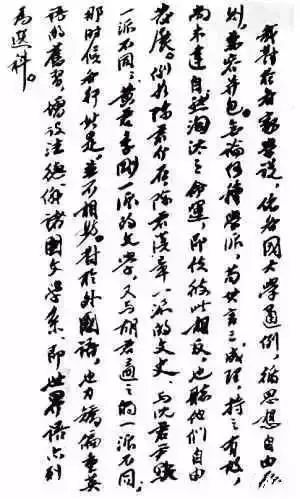 我對於各家學說，依各國大學通例，循思想自由原
則，兼容并包。無論何種學派，苟其言之成理，持之有故，
尚不達自然淘汰之命運，即使彼此相反，也聽他們自由
發展。例如陳君介石、陳君漢章一派的文史，与沈君尹默
一派不同；黃君季剛一派的文學，又与胡君適之的一派不同；
那時候各行其是，並不相妨。對於外國語，也力矯偏重英
語的舊習，增設法德俄諸國文學系，即世界語亦列
為選科。